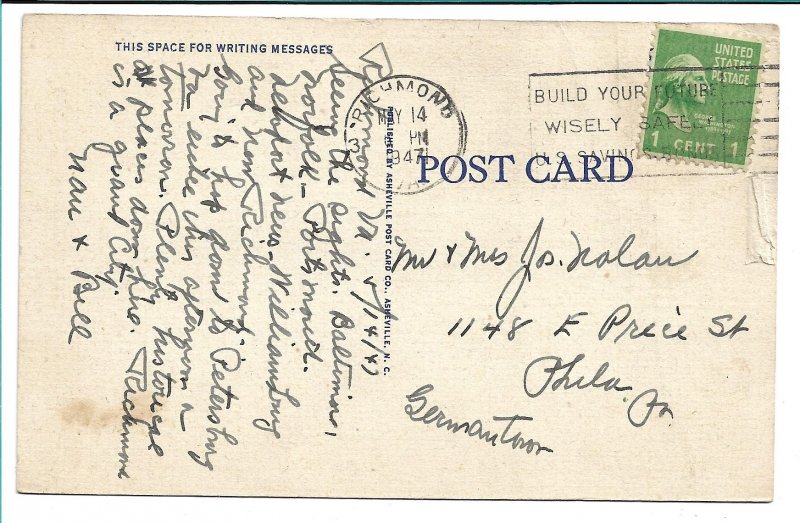 THIS SPACE FOR WRITING MESSAGES
Richmond Va. 5/14/47
Seeing the sights. Baltimore,
Norfolk - Portsmouth.
Newport News - Williamsburg
and now Richmond.
Going to hop down to Petersburg
Va. either this afternoon or
tomorrow. Plenty historical
places down here. Richmond
is a quaint City.
Nan & Bill
PUBLISHED BY ASHEVILLE POST CARD CO., ASHEVILLE, N. C.
RICHMOND
MAY 14
3 PM
1947
VA.
BUILD YOUR FUTURE
WISELY SAFELY
U.S. SAVINGS
UNITED
STATES
POSTAGE
1 CENT 1
POST CARD
Mr & Mrs Jos. Nolan
1148 E Price St
Phila. Pa.
Germantown